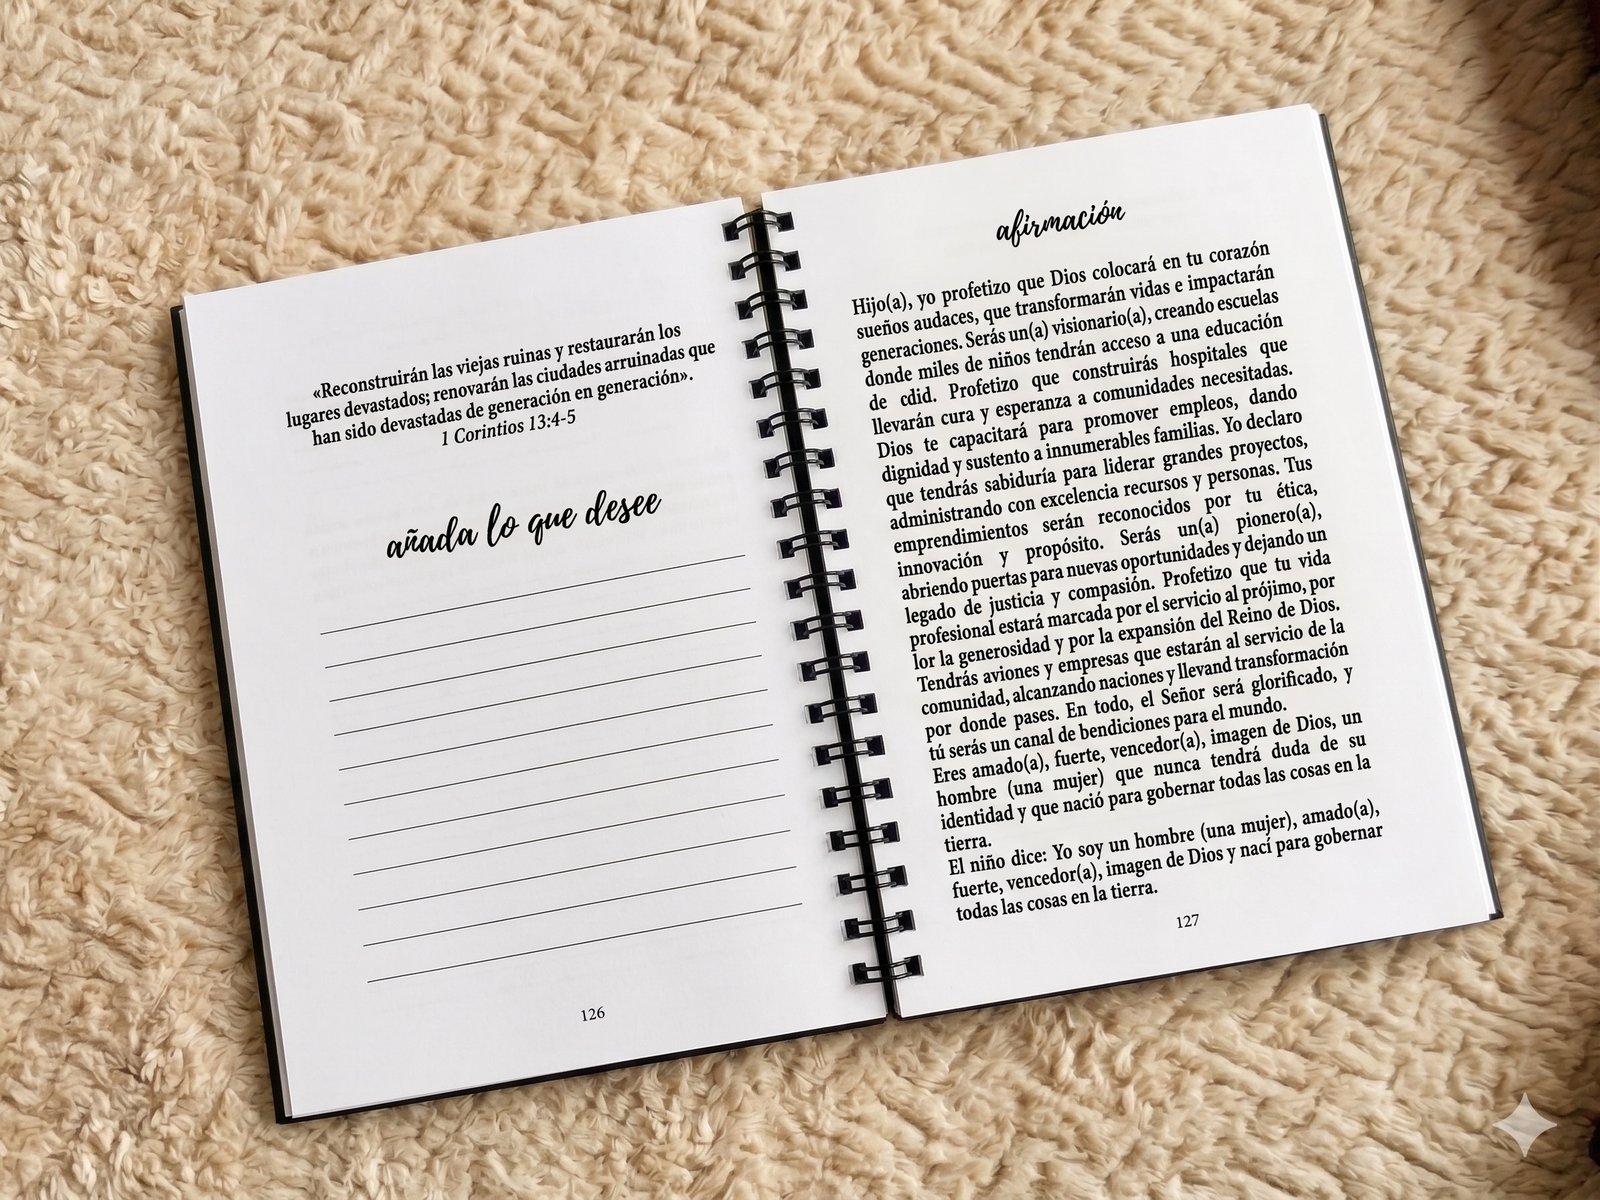 «Reconstruirán las viejas ruinas y restaurarán los
lugares devastados; renovarán las ciudades arruinadas que
han sido devastadas de generación en generación».
1 Corintios 13:4-5
añada lo que desee
126
afirmación
Hijo(a), yo profetizo que Dios colocará en tu corazón
sueños audaces, que transformarán vidas e impactarán
generaciones. Serás un(a) visionario(a), creando escuelas
donde miles de niños tendrán acceso a una educación
de cdid. Profetizo que construirás hospitales que
llevarán cura y esperanza a comunidades necesitadas.
Dios te capacitará para promover empleos, dando
dignidad y sustento a innumerables familias. Yo declaro
que tendrás sabiduría para liderar grandes proyectos,
administrando con excelencia recursos y personas. Tus
emprendimientos serán reconocidos por tu ética,
innovación y propósito. Serás un(a) pionero(a),
abriendo puertas para nuevas oportunidades y dejando un
legado de justicia y compasión. Profetizo que tu vida
profesional estará marcada por el servicio al prójimo, por
lor la generosidad y por la expansión del Reino de Dios.
Tendrás aviones y empresas que estarán al servicio de la
comunidad, alcanzando naciones y llevand transformación
por donde pases. En todo, el Señor será glorificado, y
tú serás un canal de bendiciones para el mundo.
Eres amado(a), fuerte, vencedor(a), imagen de Dios, un
hombre (una mujer) que nunca tendrá duda de su
identidad y que nació para gobernar todas las cosas en la
tierra.
El niño dice: Yo soy un hombre (una mujer), amado(a),
fuerte, vencedor(a), imagen de Dios y nací para gobernar
todas las cosas en la tierra.
127